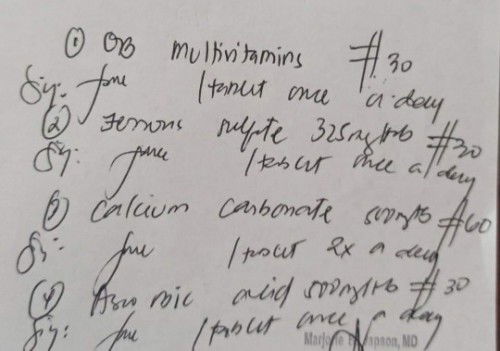 ① OB multivitamins #30
Sig: 1 tablet once a day
② Ferrous sulfate 325mg/tab #30
Sig: 1 tablet once a day
③ Calcium carbonate 500mg/tab #60
Sig: 1 tablet 2x a day
④ Ascorbic acid 500mg/tab #30
Sig: 1 tablet once a day
MD